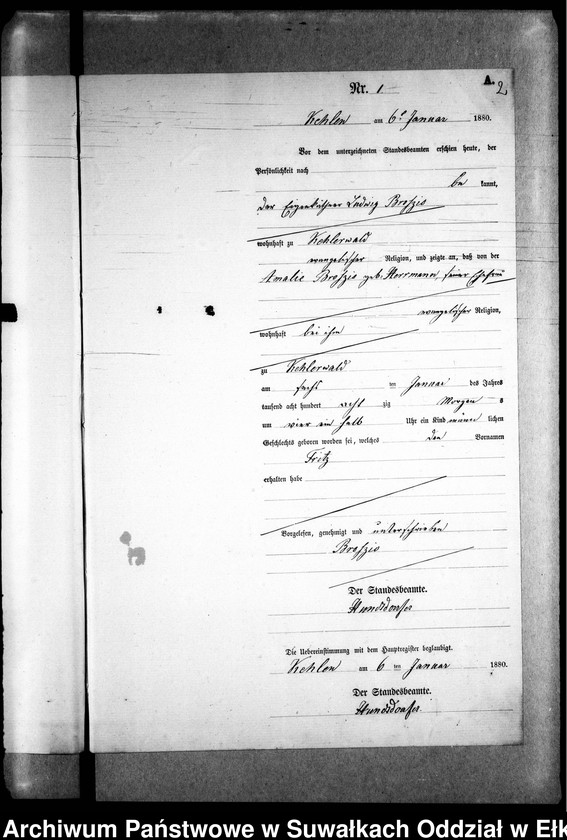 A.
2
Nr. 1
Kehlen am 6t Januar 1880.
Vor dem unterzeichneten Standesbeamten erschien heute, der
Persönlichkeit nach
be kannt,
der Eigenkäthner Ludwig Broszio
wohnhaft zu Kehlerwald
evangelischer Religion, und zeigte an, daß von der
Amalie Broszio geb. Herrmann, seiner Ehefrau
evangelischer Religion,
wohnhaft bei ihm
zu Kehlerwald
am sechs ten Januar des Jahres
tausend acht hundert acht zig Morgen s
um vier ein halb Uhr ein Kind männ lichen
Geschlechts geboren worden sei, welches den Vornamen
Fritz
erhalten habe
Vorgelesen, genehmigt und unterschrieben
Broszio
Der Standesbeamte.
Hundsdoerfer
Die Uebereinstimmung mit dem Hauptregister beglaubigt.
Kehlen am 6 ten Januar 1880.
Der Standesbeamte.
Hundsdoerfer.
Archiwum Państwowe w Suwałkach Oddział w Ełk